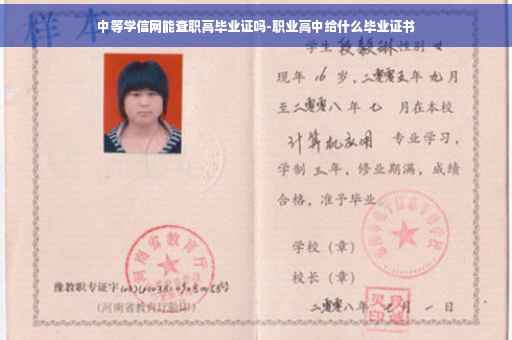 中等学信网能查职高毕业证吗-职业高中给什么毕业证书
样本
学生段毅琳性别女
现年16岁，二零零五年九月
至二零零八年七月在本校
计算机应用 专业学习，
学制三年，修业期满，成绩
合格，准予毕业
学校（章）
校长（章）
二零零八年七月一日
河南省教育厅
豫教职专证字
（河南省教育厅验印）